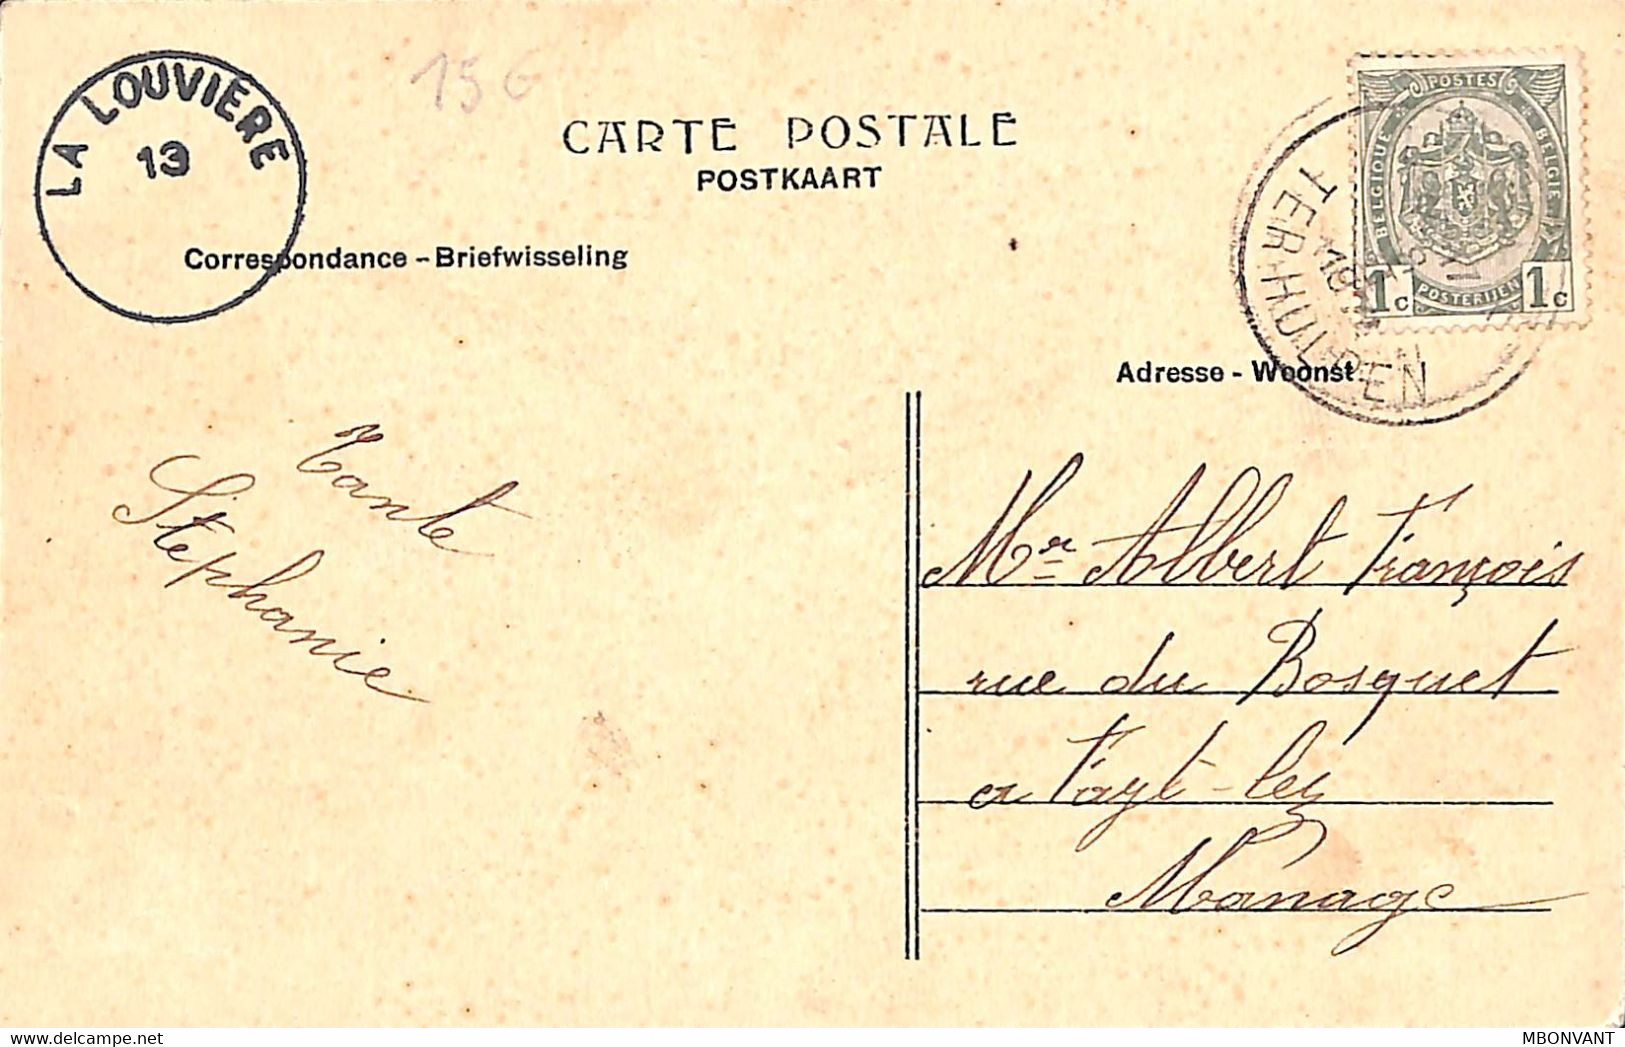 LA LOUVIÈRE
13
15 G
CARTE POSTALE
POSTKAART
Correspondance - Briefwisseling
POSTES
BELGIQUE
BELGIE
1c
POSTERIJEN
1c
TER-HULPEN
Adresse - Woonst
Tante
Stephanie
Mr Albert François
rue du Bosquet
a Fayt-lez
Manage
MBONVANT